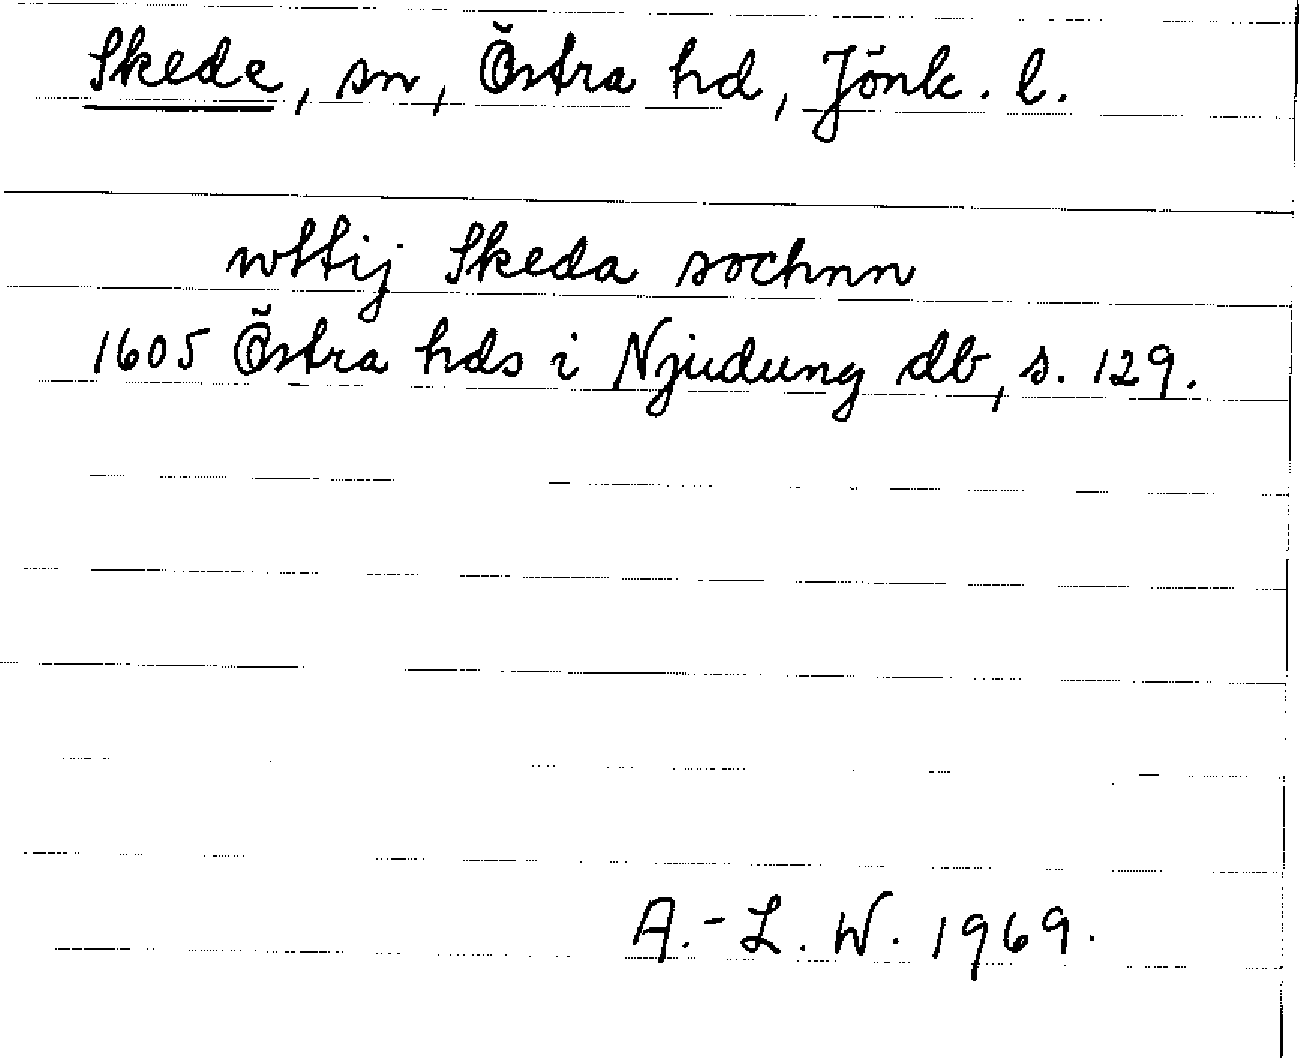 Skede, sn, Östra hd, Jönk. l.
wttij Skeda sochnn
1605 Östra hds i Njudung db, s. 129.
A.-L. W. 1969.